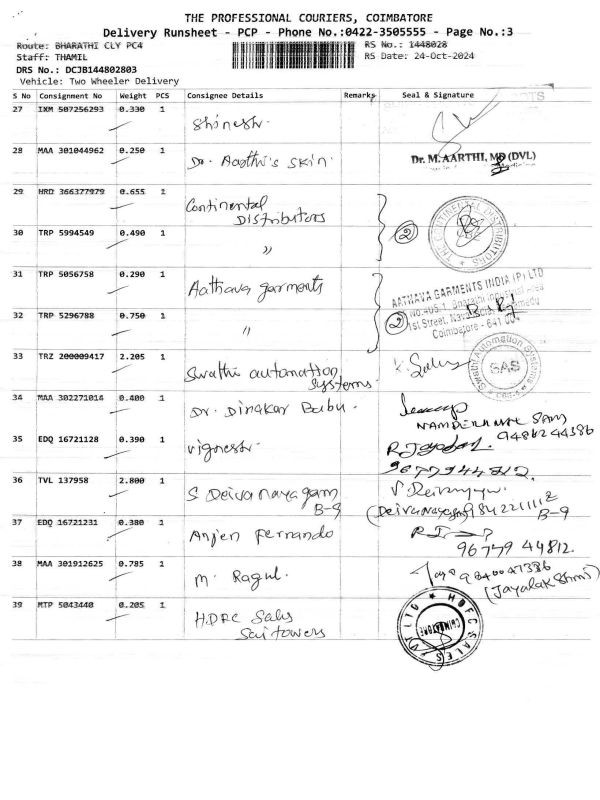 THE PROFESSIONAL COURIERS, COIMBATORE
Delivery Runsheet - PCP - Phone No.:0422-3505555 - Page No.:3
Route: BHARATHI CLY PC4
RS No.: 1448028
Staff: THAMIL
RS Date: 24-Oct-2024
DRS No.: DCJB144802803
Vehicle: Two Wheeler Delivery
S No Consignment No Weight PCS Consignee Details Remarks Seal & Signature
27 IXM 507256293 0.330 1
Shinesh.
28 MAA 301044962 0.250 1
Dr. Aarthi's skin.
Dr. M.AARTHI, MD (DVL)
29 HRD 366377979 0.655 1
Continental
Distributors
2
THE CONTINENTAL DISTRIBUTORS
CBE
30 TRP 5994549 0.490 1
"
31 TRP 5056758 0.290 1
Aathava garments
AATHAVA GARMENTS INDIA (P) LTD
No.405/1, Bharathi Industrial Area
32 TRP 5296788 0.750 1
"
2
1st Street,
Coimbatore - 641 004
33 TRZ 200009417 2.205 1
Swathi automation
Systems.
Swathy Automation Systems
SAS
CBE-4
34 MAA 302271014 0.400 1
Dr. Dinakar Babu.
9486244386
35 EDQ 16721128 0.390 1
Vignesh.
9677944812.
36 TVL 137958 2.800 1
S Deivanayagam
B-9
(Deivanayagam) 9842211112
B-9
37 EDQ 16721231 0.380 1
Anjen Fernando
96779 44812.
38 MAA 301912625 0.785 1
M. Ragul.
9840047386
(Jayalakshmi)
39 MTP 5043440 0.205 1
HDFC Sales
Sai towers
HDFC SALES PVT LTD
COIMBATORE